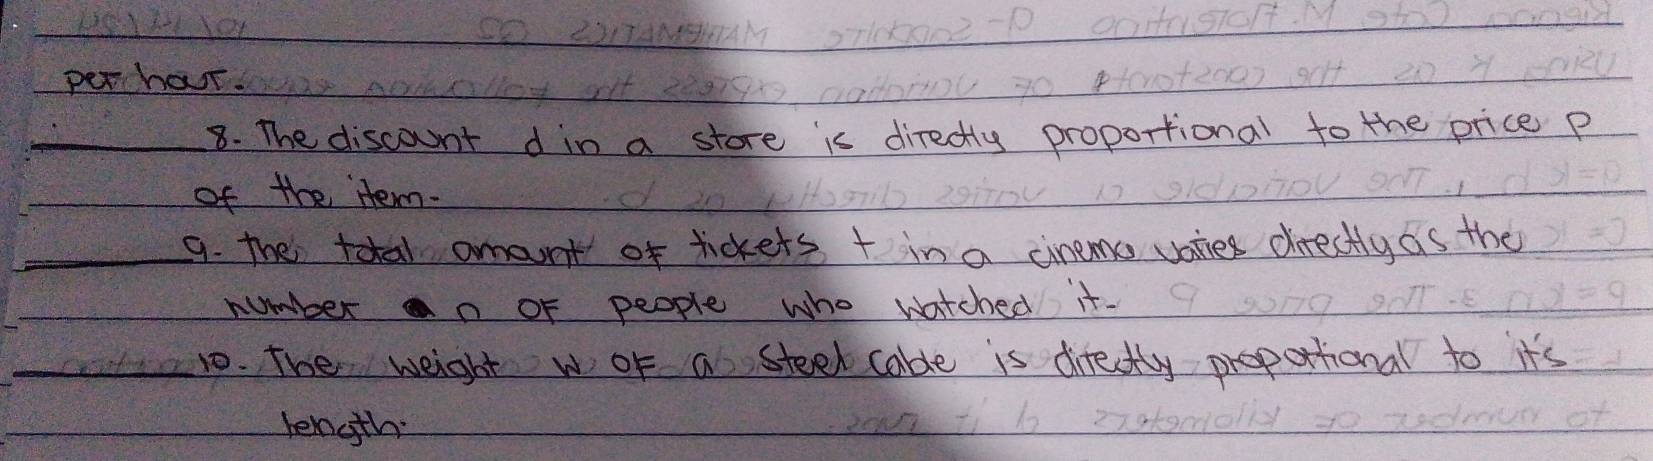 per hour.
8. The discount d in a store is directly proportional to the price p
of the item.
9. The total amount of tickets t in a cinema varies directly as the
number n of people who watched it.
10. The weight w of a steel cable is directly proportional to it's
length.